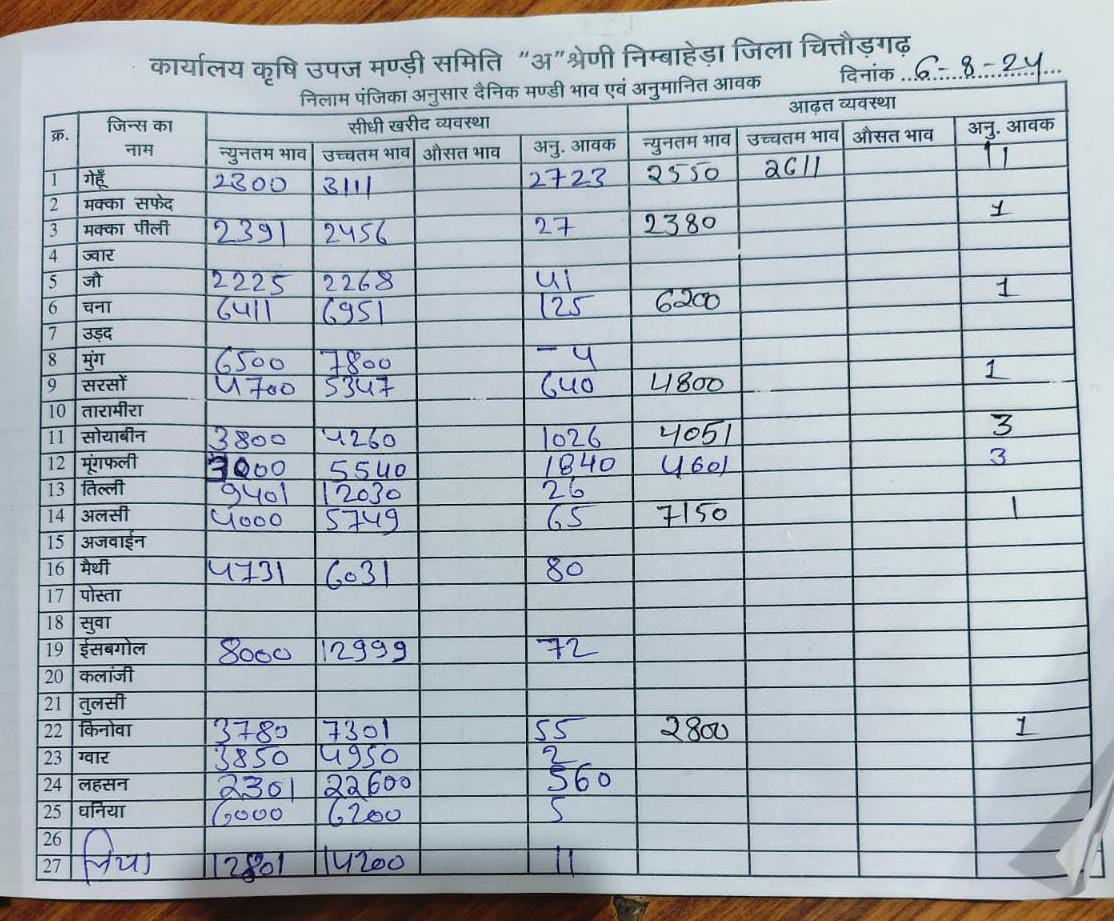 कार्यालय कृषि उपज मण्डी समिति "अ" श्रेणी निम्बाहेड़ा जिला चित्तौड़गढ़
निलाम पंजिका अनुसार दैनिक मण्डी भाव एवं अनुमानित आवक
दिनांक 6-8-24
क्र. जिन्स का नाम सीधी खरीद व्यवस्था आढ़त व्यवस्था
न्युनतम भाव उच्चतम भाव औसत भाव अनु. आवक न्युनतम भाव उच्चतम भाव औसत भाव अनु. आवक
1 गेहूँ 2300 3111 2723 2550 2611 11
2 मक्का सफेद
3 मक्का पीली 2391 2456 27 2380 1
4 ज्वार
5 जौ 2225 2268 41
6 चना 6411 6951 125 6200 1
7 उड़द
8 मुंग 6500 7800 - 4
9 सरसों 4700 5347 640 4800 1
10 तारामीरा
11 सोयाबीन 3800 4260 1026 4051 3
12 मूंगफली 3000 5540 1840 4601 3
13 तिल्ली 9401 12030 26
14 अलसी 4000 5749 65 7150 1
15 अजवाईन
16 मैथी 4731 6031 80
17 पोस्ता
18 सुवा
19 ईसबगोल 8000 12999 72
20 कलांजी
21 तुलसी
22 किनोवा 3780 7301 55 2800 1
23 ग्वार 3850 4950 2
24 लहसन 2301 22600 560
25 धनिया 6000 6200 5
26
27 14200 11